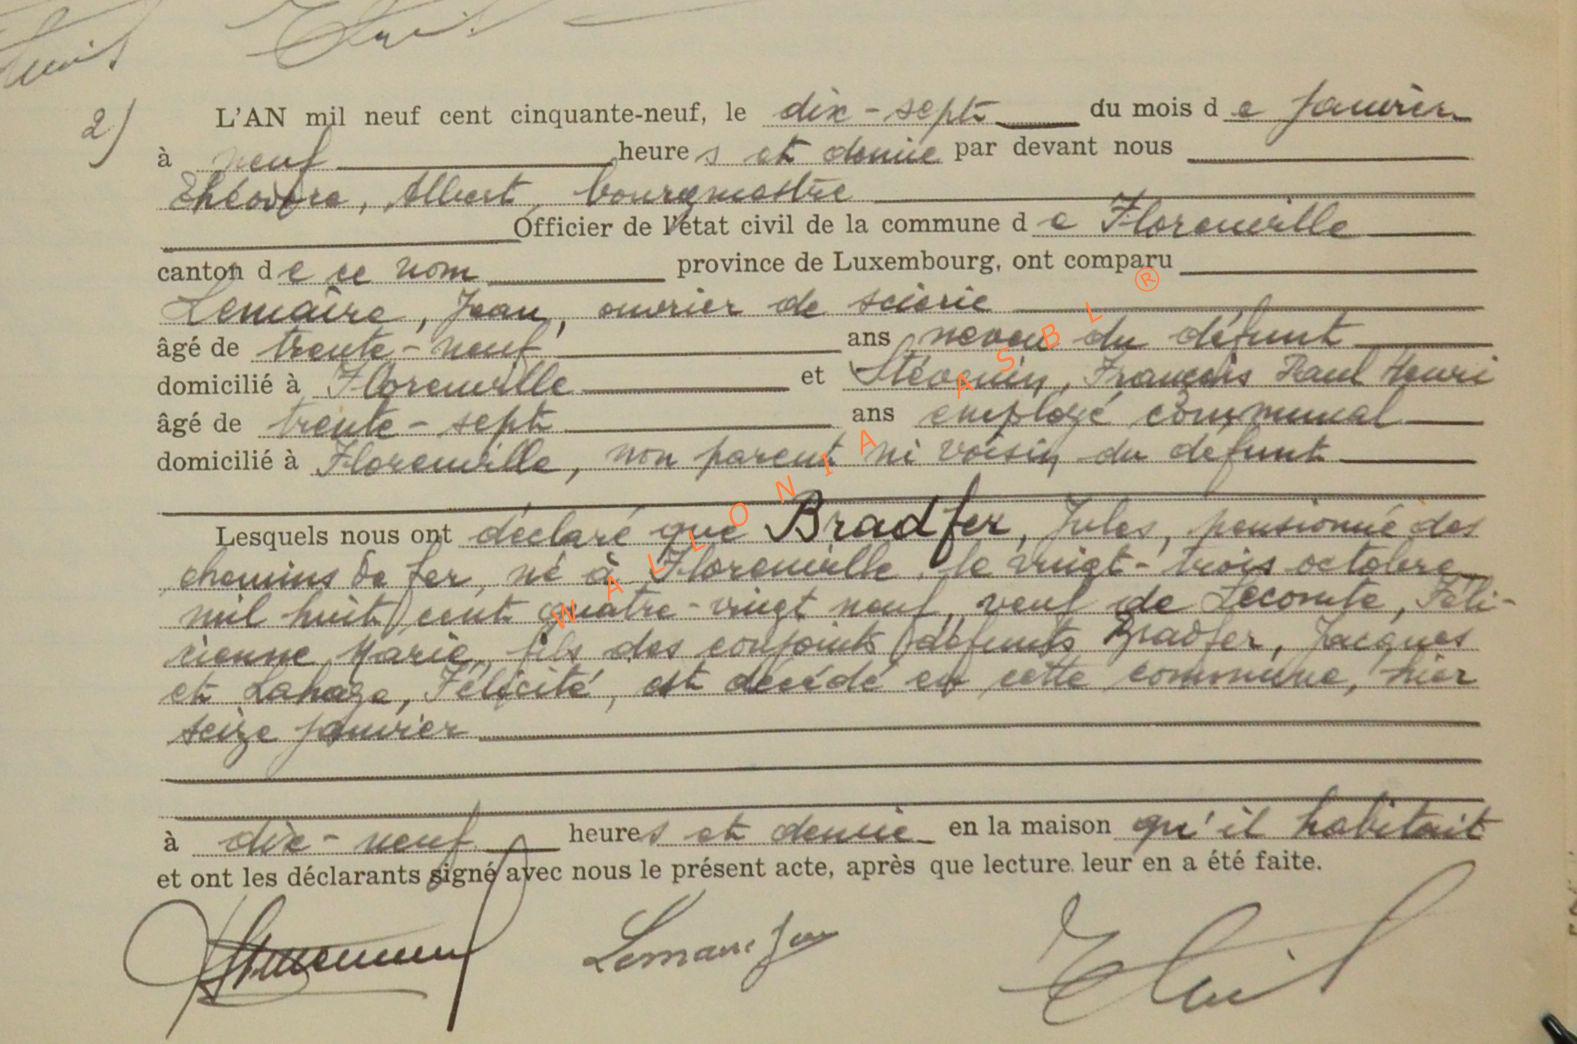 2)
L'AN mil neuf cent cinquante-neuf, le dix-sept du mois de Janvier
à neuf heures et demie par devant nous
Théodore, Albert, bourgmestre
Officier de l'état civil de la commune de Florenville
canton de ce nom province de Luxembourg, ont comparu
Lemaire, Jean, ouvrier de scierie
âgé de trente-neuf ans neveu du défunt
domicilié à Florenville et Stévenin, François Paul Henri
âgé de trente-sept ans employé communal
domicilié à Florenville, non parent ni voisin du défunt
Lesquels nous ont déclaré que Bradfer, Jules, pensionné des
chemins de fer, né à Florenville, le vingt-trois octobre
mil huit cent quatre-vingt neuf, veuf de Lecomte, Féli-
cienne, Marie, fils des conjoints défunts Bradfer, Jacques
et Lahaye, Félicité, est décédé en cette commune, hier
seize janvier
à dix-neuf heures et demie en la maison qu'il habitait
et ont les déclarants signé avec nous le présent acte, après que lecture leur en a été faite.
Lemaire Jean
WALLONIA ASBL ®